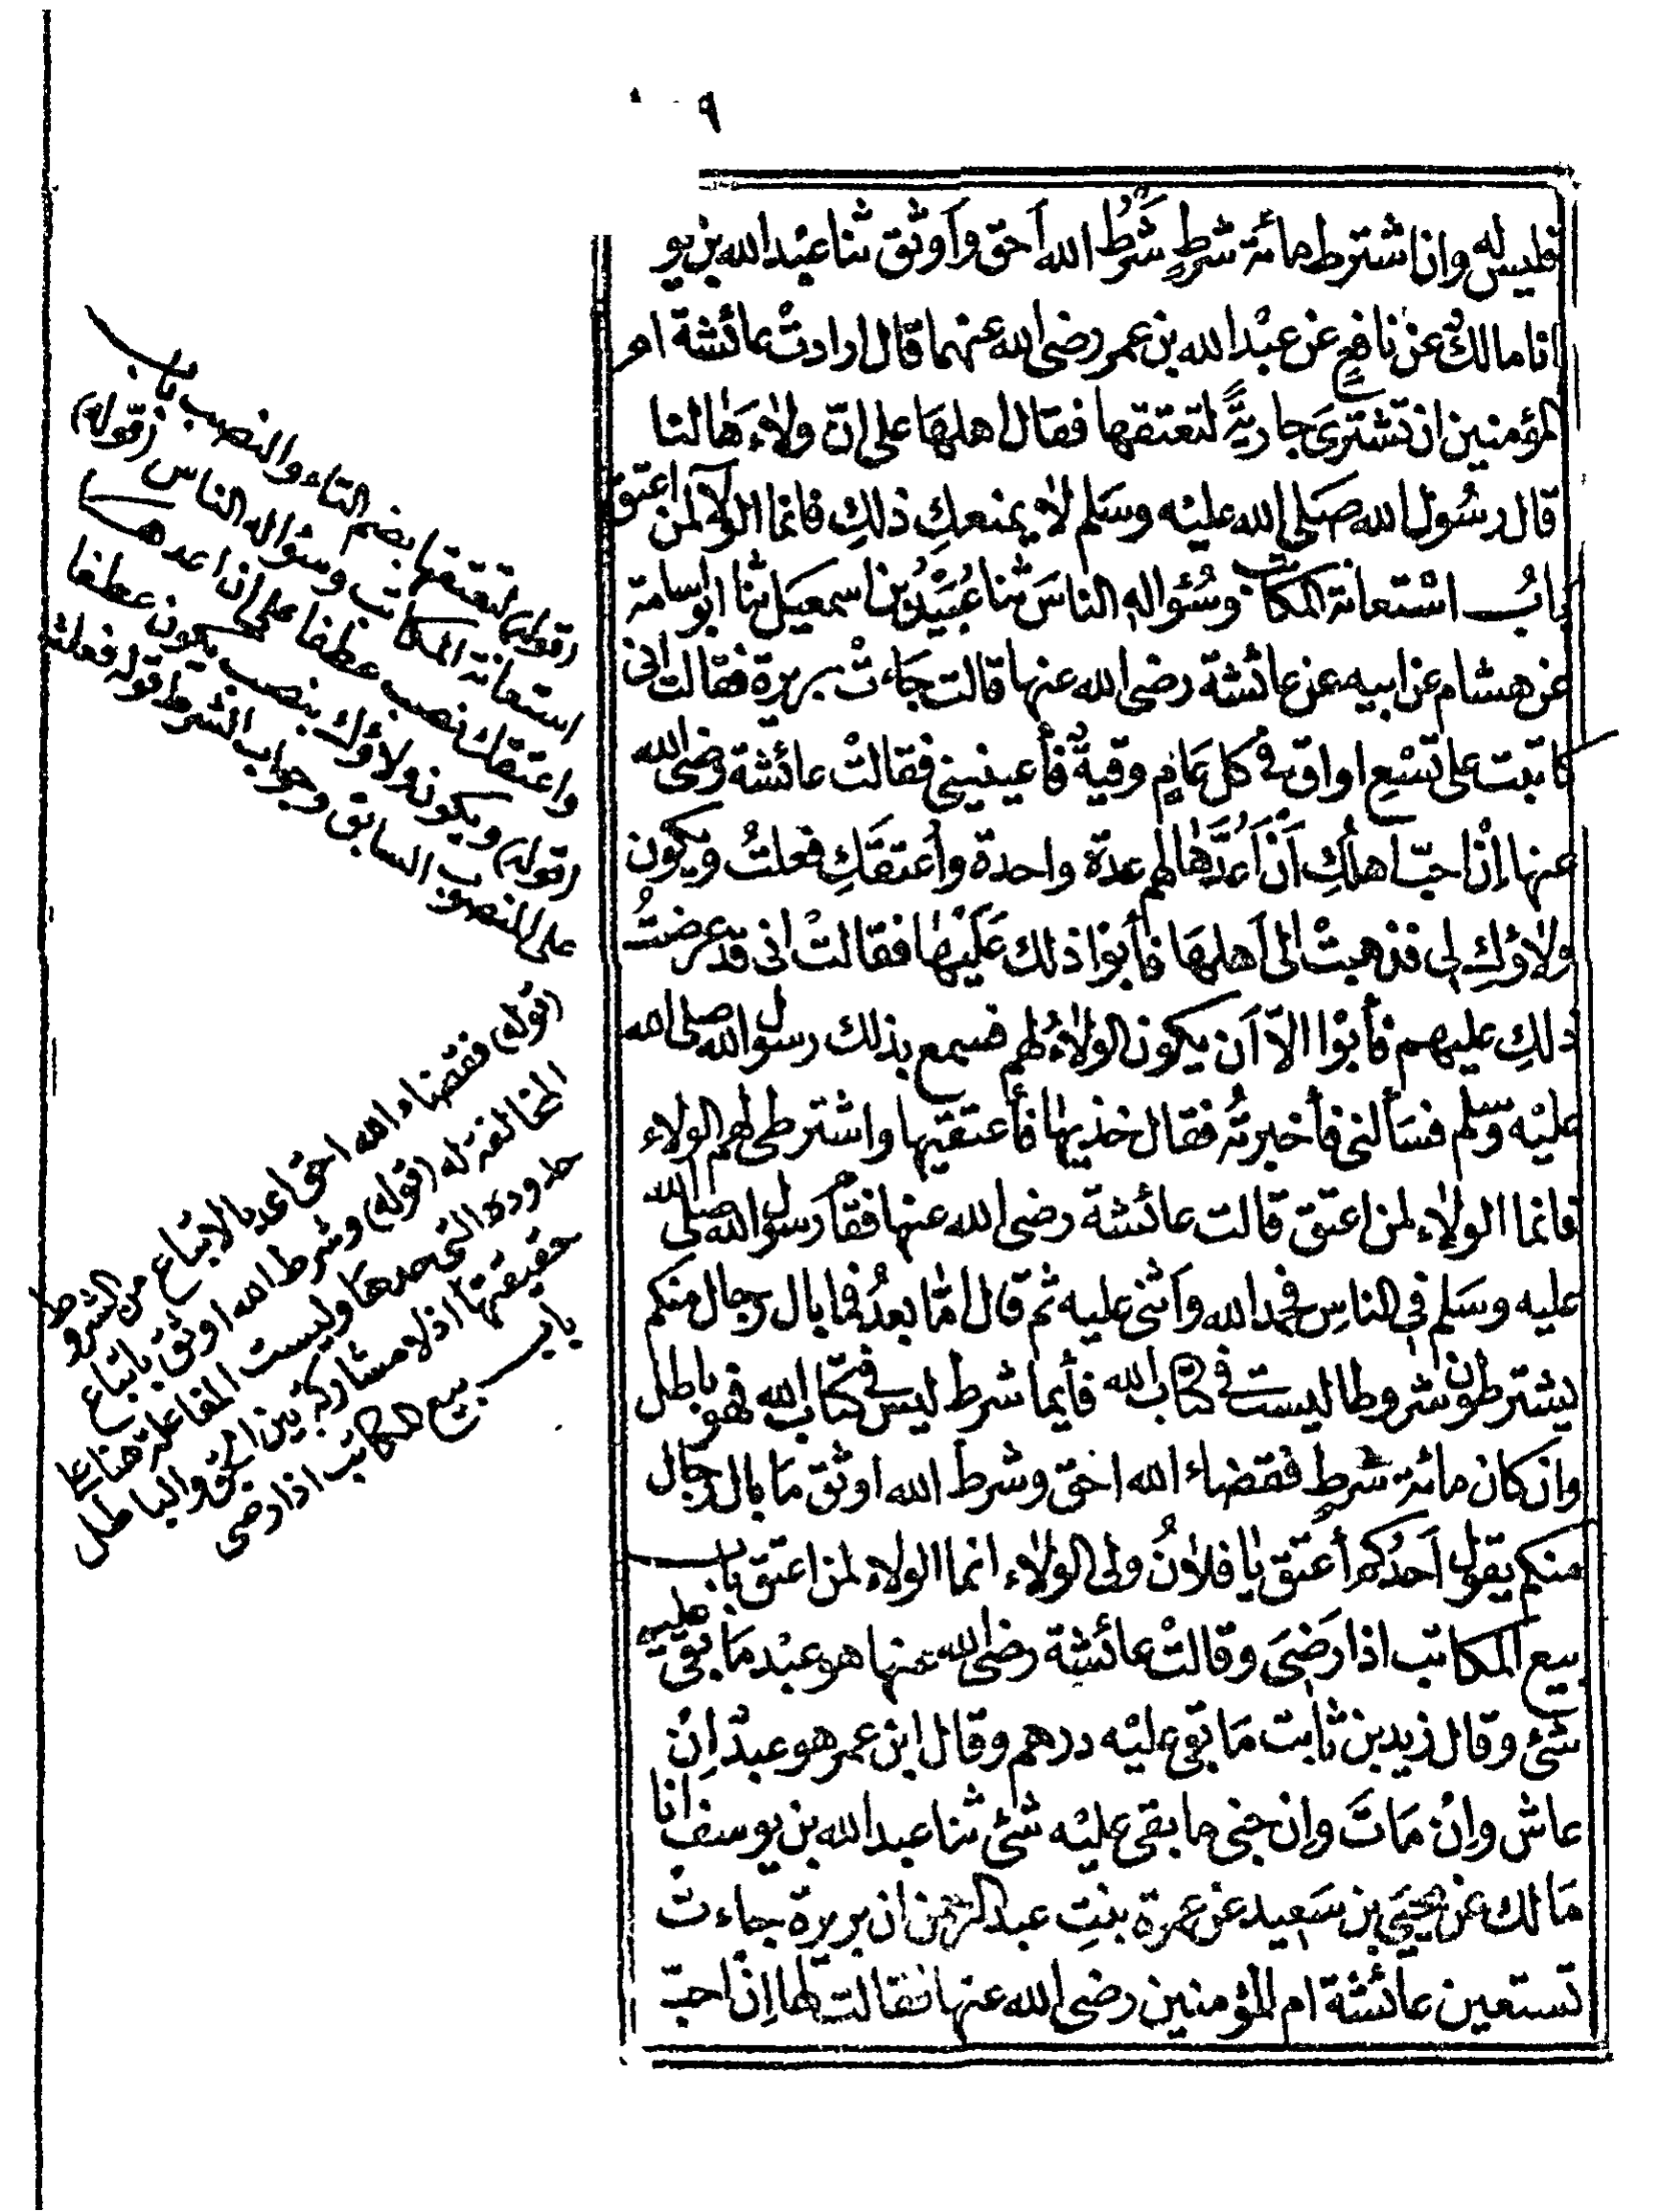 ٩
فليس له وان اشترط مائة شرطٍ شَرْطُ الله اَحق واَوثق ثنا عبْد الله بن يو
انا مالكٌ عن نافعٍ عن عبْد الله بن عمر رضى الله عنهما قال ارادتْ عائشة ام
المؤمنين ان تشترىَ جاريةً لتعتقها فقال اهلهَا على انّ ولاءَهَا لنا
قال رسُول الله صَلى الله عليْه وسَلم لا يمنعكِ ذلكِ فانما الولاء لمن اعتق
بابُ استعانة المكاتب وسُؤاله الناسَ ثنا عُبَيْدُ بن اسمعيَل ثنا ابو اسامة
عن هشام عن ابيه عن عائشة رضى الله عنها قالت جَاءتْ بريرة فقالت انى
كاتبت على تسْعِ اواق فى كل عَامٍ وقيةٌ فأعينينى فقالتْ عائشة رضى الله
عنها اِنْ احبّ اهلُكِ اَنْ اَعُدَّهَا لهم عدة واحدة واُعتقَكِ فعلتُ ويكون
ولاؤكِ لى فذهبتْ الى اَهلهَا فأبَوْا ذلك عَليْهَا فقالتْ انى قد عرضتُ
ذلكِ عليهم فأبوْا الاّ اَن يكون الولاءُ لهم فسمع بذلك رسول الله صلى الله
عليْه وسَلم فسَألنى فأخبرتُه فقال خذيها فأعتقيها واشترطى لهم الولاء
فانما الولاء لمن اعتق قالت عائشة رضى الله عنها فقام رسول الله صلى الله
عليه وسَلم فى الناسِ فحمد الله واَثنى عليه ثم قال امَّا بعدُ فما بال رجال منكم
يشترطون شروطا ليست فى كتاب الله فأيما شرط ليس فى كتاب الله فهو باطل
وان كان مائة شرطٍ فقضاء الله احق وشرط الله اوثق مَا بال رجال
منكم يقول اَحدُكم أعتق يا فلانُ ولى الولاء انما الولاء لمن اعتق باب
بيع المكاتب اذا رَضىَ وقالتْ عائشة رضى الله عنها هو عبْد مَا بقى عليه
شئ وقال زيد بن ثابت مَا بقى عليْه درهم وقال ابن عمر هو عبدٌ اِنْ
عاش واِنْ مَاتَ واِن جنى ما بقى عليْه شئ ثنا عبد الله بن يوسف انا
مَالك عن يحيَى بن سَعيد عن عمرة بنتِ عبد الرحمن ان بريرة جاءت
تستعين عائشة ام المؤمنين رضى الله عنها فقالت لها اِن احبّ
(قوله) لتعتقها بضم التاء والنصب باب
استعانة المكاتب وسؤاله الناس (قوله)
واعتقك نصب عطفا على ان اعدها
(قوله) ويكون ولاؤك بنصب يكون عطفا
على المنصوب السابق وجواب الشرط قوله فعلت
(قوله) فقضاء الله احق اى بالاتباع من الشروط
المخالفة له (قوله) وشرط الله اوثق باتباع
حدوده التى حدها وليست المفاعلة هنا على
حقيقتها اذ لا مشاركة بين الحق والباطل
باب بيع المكاتب اذا رضى